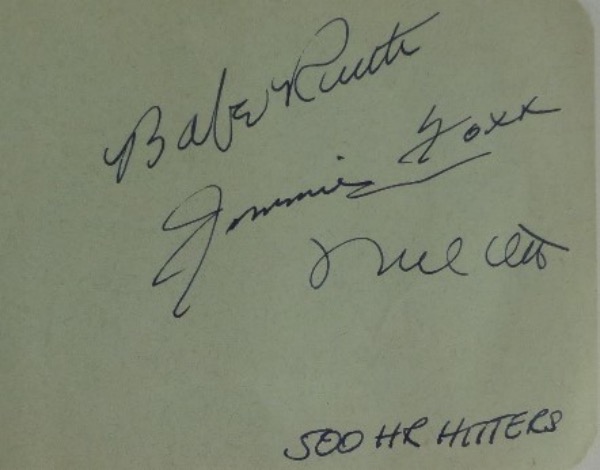 Babe Ruth
Jimmie Foxx
Mel Ott
500 HR HITTERS